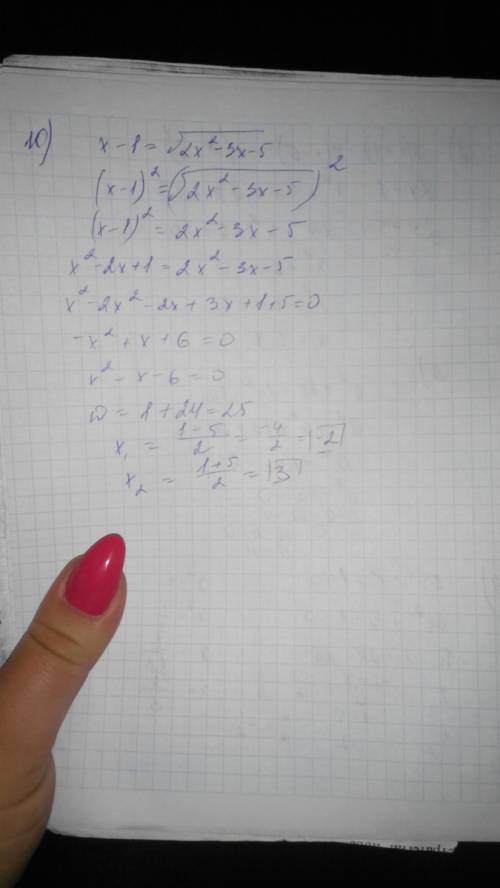 10) x - 1 = √2x² - 3x - 5
(x-1)² = (√2x² - 3x - 5)²
(x-1)² = 2x² - 3x - 5
x² - 2x + 1 = 2x² - 3x - 5
x² - 2x² - 2x + 3x + 1 + 5 = 0
-x² + x + 6 = 0
x² - x - 6 = 0
D = 1 + 24 = 25
x₁ = 1-5/2 = -4/2 = |-2|
x₂ = 1+5/2 = |3|